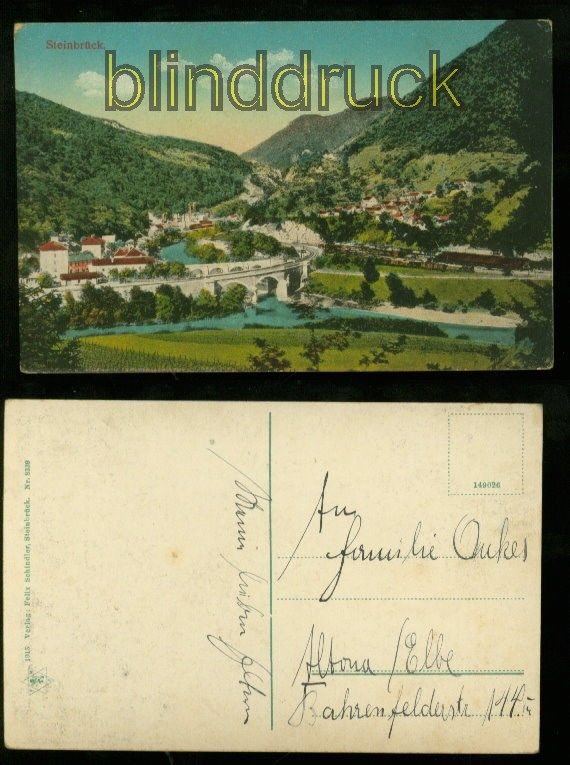 Steinbrück.
blinddruck
1915 Verlag: Felix Schindler, Steinbrück. Nr. 2339
149026
An
Familie Onkes
Altona / Elbe
Bahrenfelderstr 114